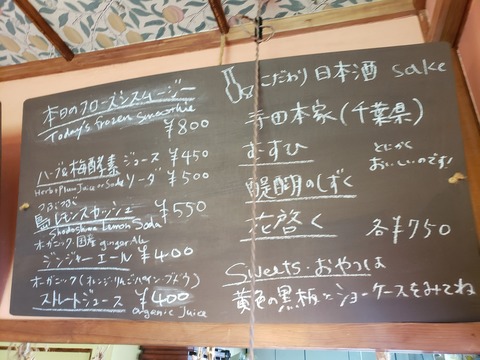 本日のフローズンスムージー
Today's frozen smoothie
¥800
ハーブ&梅酵素 ジュース ¥450
Herb&Plum Juice or Soda ソーダ ¥500
島レモンスカッシュ ¥550
Shodoshima Lemon Soda
オーガニック国産 ginger Ale
ジンジャーエール ¥400
オーガニック(オレンジ・りんご・パイン・ブドウ)
ストレートジュース ¥400
organic Juice
こだわり 日本酒 sake
寺田本家(千葉県)
むすひ とにかく
おいしいのです!
醍醐のしずく
花啓く 各¥750
Sweets・おやつは
黄色の黒板とショーケースをみてね